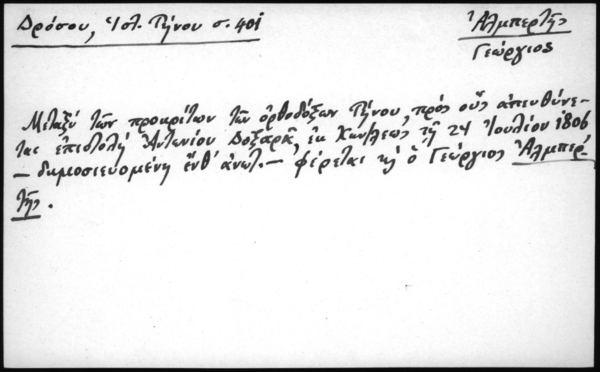 Δρόσου, Ἱστ. Τήνου σ. 401
Ἀλμπερτῆς
Γεώργιος
Μεταξὺ τῶν προκρίτων τῶν ὀρθοδόξων Τήνου, πρὸς οὓς ἀπευθύνε-
ται ἐπιστολὴ Ἀντωνίου Δοξαρᾶ, ἐκ Κων/λεως τῇ 24 Ἰουλίου 1806
— δημοσιευομένη ἔνθ' ἀνωτ. — φέρεται κ' ὁ Γεώργιος Ἀλμπερ-
τῆς.